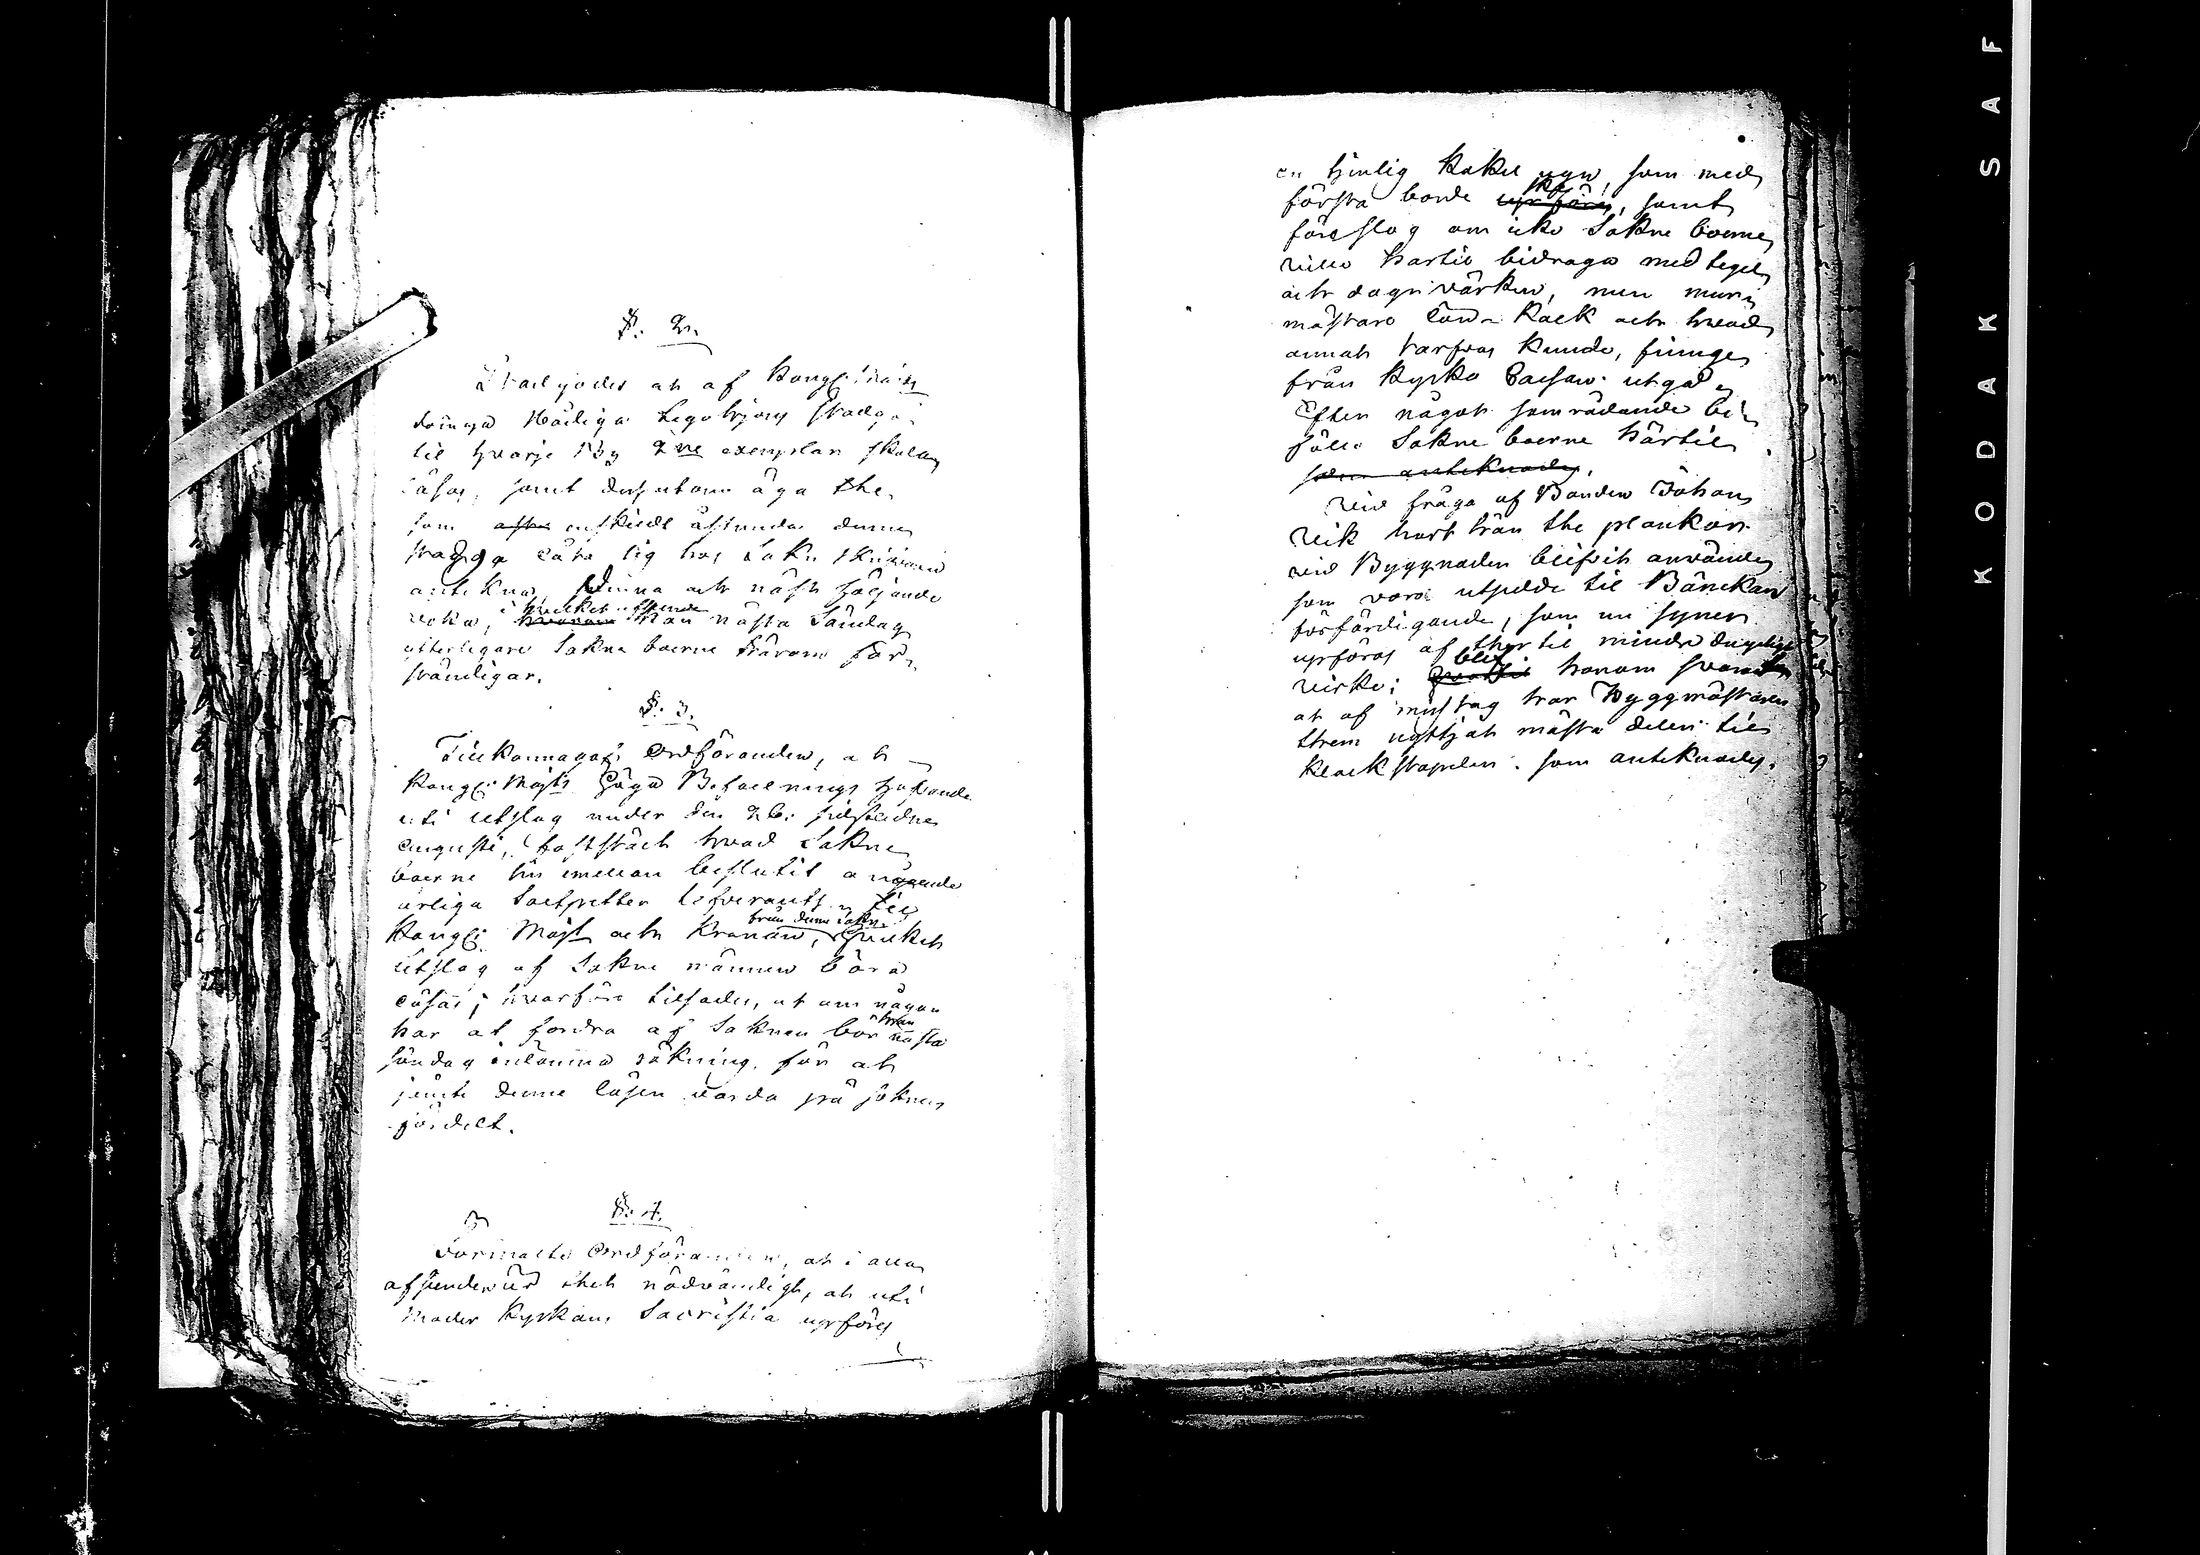 §. 2.
at af Kongl.
Nådiga Legohjons stadga
til hwarje By 2ne exemplar skola
lösas, samt desutom äga the
som enskiedt åstunda denna
stadga låta sig hos Sokne skrifvaren
antekna, denna och näst följande
veka, i hvilket afseende man nästa Söndag
ytterligare Sokne boerne härom för-
ständigar.
§. 3.
Tilkännagaf Ordföranden, at
Kongl. Majts Höga Befallnings hafvande
uti utslag under den 26. sidstledne
Augusti, fastställt hwad Sokne
boerne sin emellan beslutit angående
årliga Saltpetter leverants til
Kongl. Majt och Kronan, från denne Sokn hvilket
utslag af Sokne männen böra
lösas; hvarföre tilsades, at om någon
har at fordra af Soknen bör han nästa
söndag inlämna räkning, för at
jemte denne lösen varda på soknen
fördelt.
§. 4.
Förmälte Ordföranden, at i alla
afseenden är thet nödvändigt, at uti
Moder Kyrkans Sacristia upföres
en tjenlig Kakel ugn, som med
första borde ske, samt
föreslog om icke Sokne boerne
ville härtil bidraga med tegel
och dagsvärken, men mur
mästare lön Kalk och hvad
annat tarfvas kunde, finge
från Kyrko Cassan utgå.
Efter något samrådande bi-
föllo Sokne boerne härtil
som anteknades.
Vid fråga af Bonden Johan
Vik hvart hän the plankor
vid Byggnaden blifvit använda
som voro utsedde til Bänckar
förfärdigande, som nu synes
upföras af ther til mindre dugeligt
virke; blef honom svarat
at af misstag har Byggmästaren
them nyttjat mästa delen til
Klockstapelen. som anteknades.
KODAK SAF